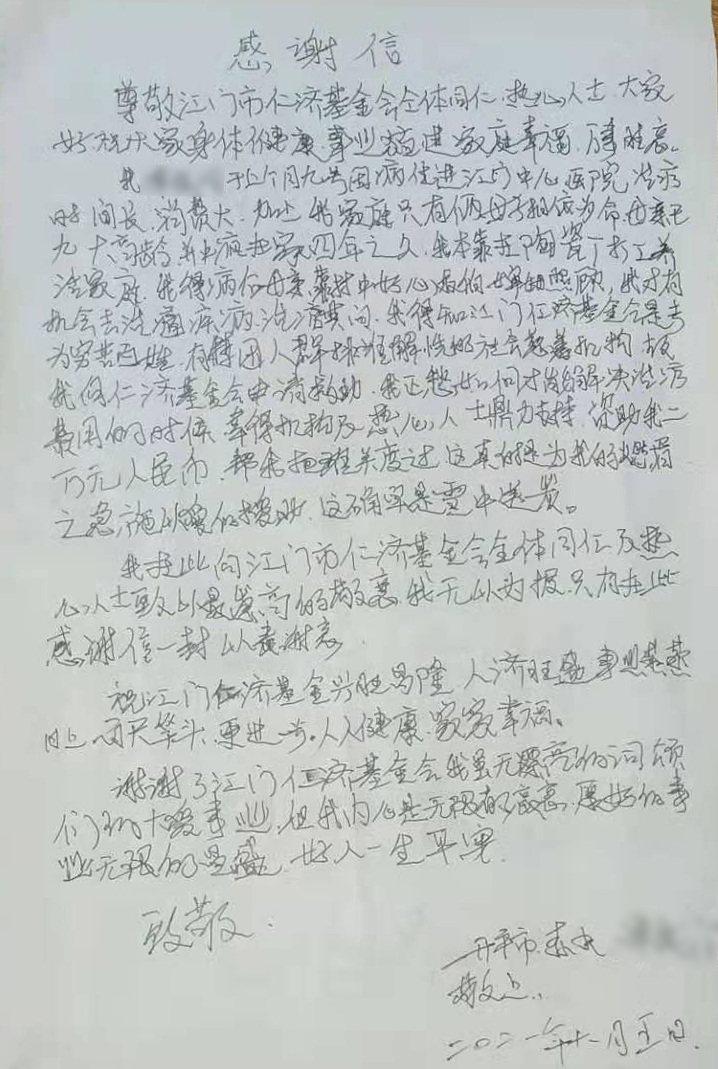 感谢信
尊敬江门市仁济基金会全体同仁、热心人士、大家
好祝大家身体健康、事业猛进家庭幸福、万事胜意。
我 于上个月九号因病住进江门中心医院治病
时间长、消费大、加上我家庭只有俩母子相依为命、母亲已
九十高龄并中疯在家四年之久、我本靠在陶瓷厂打工养
活家庭、我得病住 母亲靠村中好心 照顾、我才有
机会去治疗疾病、治病其间、我得知江门仁济基金会是专
为穷苦百姓、有 困人群排难解忧的社会慈善机构、故
我向仁济基金会申请救助、我正愁如何才能解决治病
费用的时候、幸得机构及热心人士鼎力支持、资助我二
万元人民币、帮我把难关度过、这真的是为我的燃眉
之急施以 的援助、这确实是雪中送炭。
我在此向江门市仁济基金会全体同仁及热
心人士致以最崇高的敬意、我无以为报、只有在此
感谢信一封以表谢意、
祝江门仁济基金兴旺昌隆、人济旺盛事业蒸蒸
日上、百尺竿头、更进一步。人人健康、家家幸福。
谢谢了江门仁济基金会、我虽无漂亮的词颂
你们的大爱事业、但我内心是无限 的 、愿好的事
业无限的昌盛、好人一生平安。
致敬、
开平市、
敬上、
二〇二一年十一月五日、